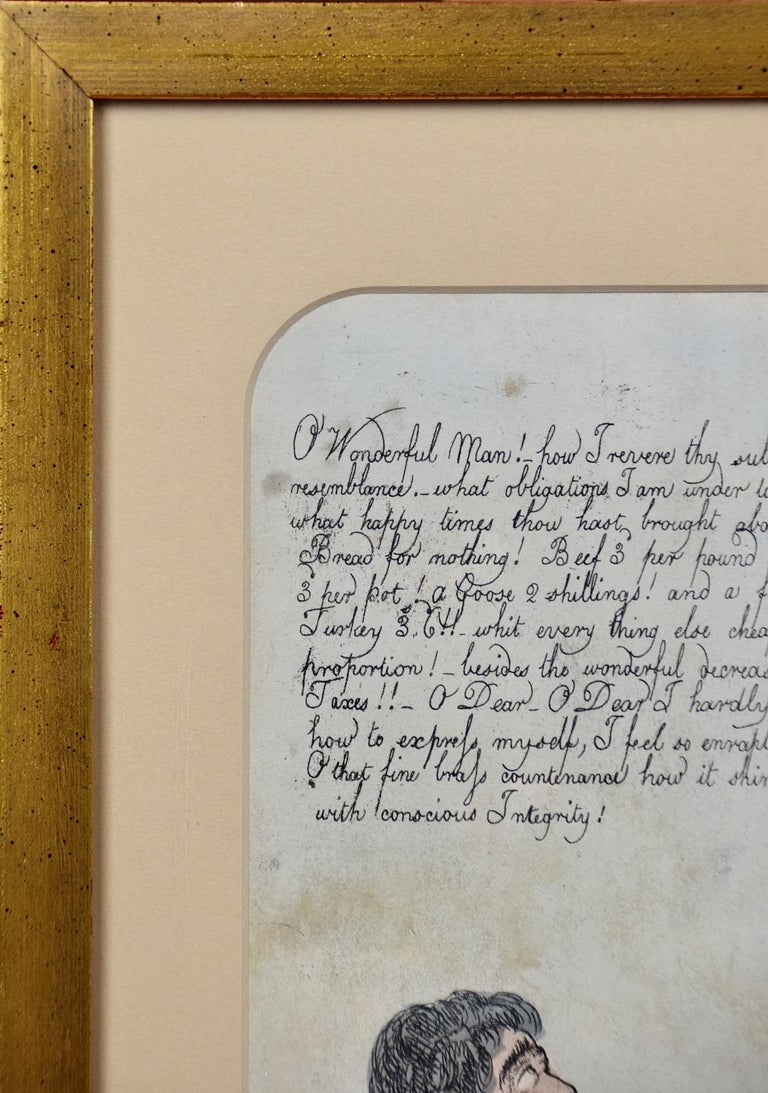 O Wonderful Man! - how I revere thy
resemblance. - what obligations I am under
what happy times thou hast brought
Bread for nothing! Beef 3 per pound
3 per pot! a Goose 2 shillings! and a
Turkey 3. whit every thing else
proportion! - besides the wonderful
Taxes!! - O Dear - O Dear I hardly
how to expreſs myself, I feel so
O that fine braſs countenance how it
with conscious Integrity!